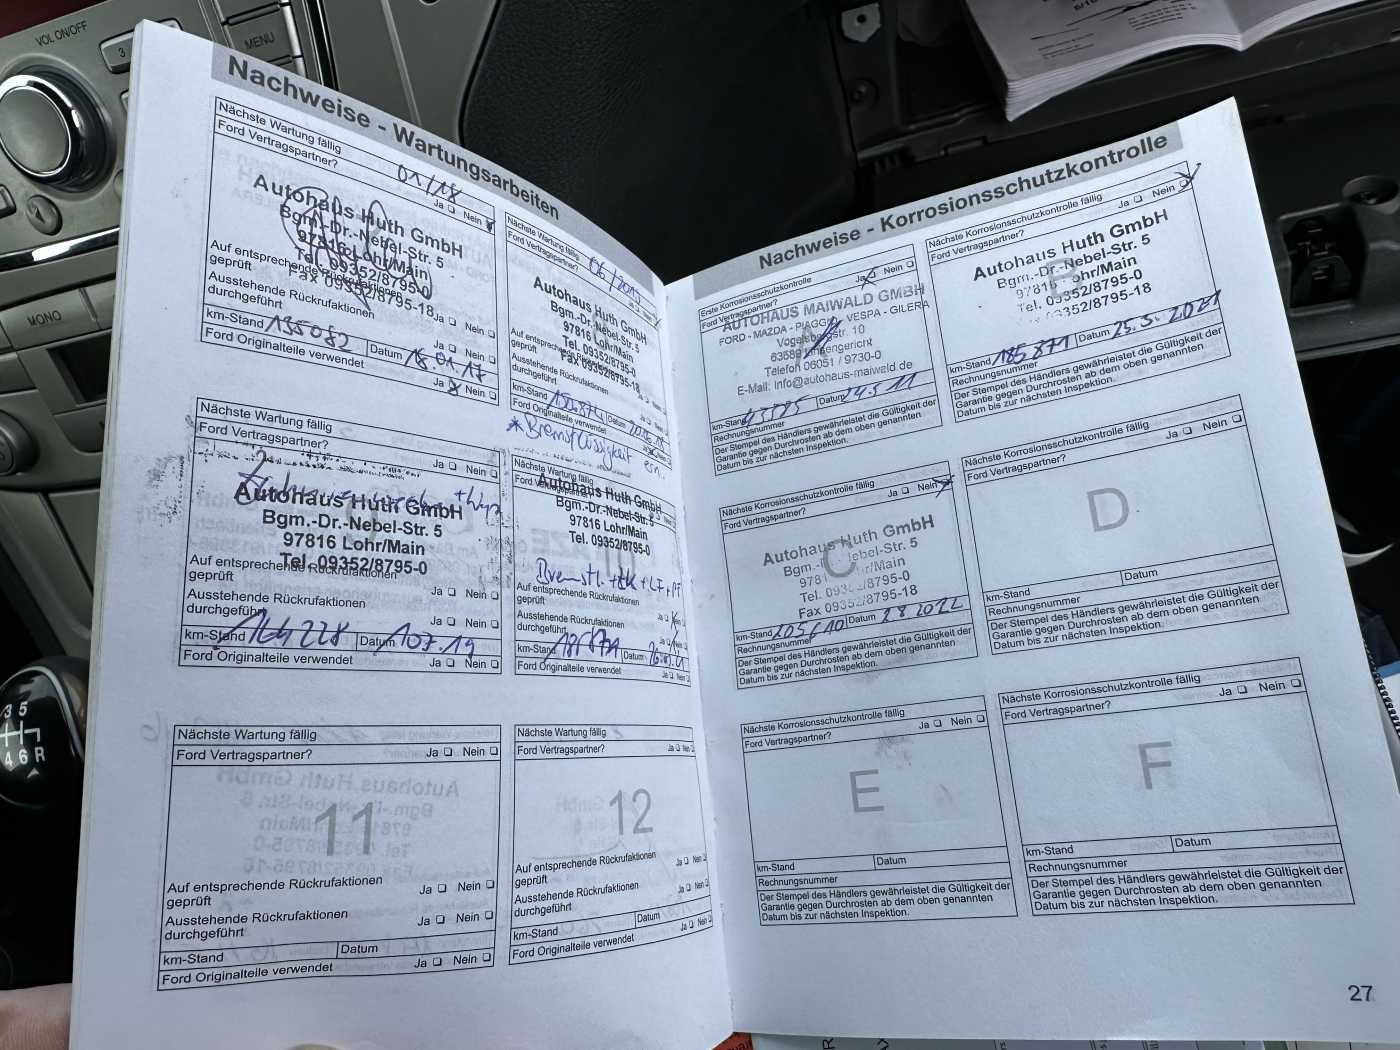 VOL ON/OFF
3
MENU
MONO
3 5
4 6 R
Nachweise - Wartungsarbeiten
Nächste Wartung fällig
01/18
Ford Vertragspartner?
Ja Nein
Autohaus Huth GmbH
Bgm.-Dr.-Nebel-Str. 5
97816 Lohr/Main
Tel. 09352/8795-0
Fax 09352/8795-18
Auf entsprechende Rückrufaktionen
geprüft
Ja Nein
Ausstehende Rückrufaktionen
durchgeführt
Ja Nein
km-Stand 135082 Datum 18.01.17
Ford Originalteile verwendet Ja Nein
Nächste Wartung fällig
Ford Vertragspartner?
Autohaus Huth GmbH
Bgm.-Dr.-Nebel-Str. 5
97816 Lohr/Main
Tel. 09352/8795-0
Fax 09352/8795-18
Ausstehende Rückrufaktionen
durchgeführt
km-Stand Datum
Ford Originalteile verwendet
* Bremsflüssigkeit ern.
Nächste Wartung fällig
Ford Vertragspartner?
Ja Nein
Autohaus Huth GmbH
Bgm.-Dr.-Nebel-Str. 5
97816 Lohr/Main
Tel. 09352/8795-0
Auf entsprechende Rückrufaktionen
geprüft
Ja Nein
Ausstehende Rückrufaktionen
durchgeführt
Ja Nein
km-Stand 164228 Datum 1.07.19
Ford Originalteile verwendet Ja Nein
Nächste Wartung fällig
Ford Vertragspartner?
Autohaus Huth GmbH
Bgm.-Dr.-Nebel-Str. 5
97816 Lohr/Main
Tel. 09352/8795-0
Auf entsprechende Rückrufaktionen
geprüft
Ja Nein
Ausstehende Rückrufaktionen
durchgeführt
km-Stand Datum
Ford Originalteile verwendet Ja Nein
Nächste Wartung fällig
Ford Vertragspartner? Ja Nein
11
Auf entsprechende Rückrufaktionen
geprüft
Ja Nein
Ausstehende Rückrufaktionen
durchgeführt
Ja Nein
km-Stand Datum
Ford Originalteile verwendet Ja Nein
Nächste Wartung fällig
Ford Vertragspartner? Ja Nein
12
Auf entsprechende Rückrufaktionen
geprüft
Ja Nein
Ausstehende Rückrufaktionen
durchgeführt
Ja Nein
km-Stand Datum
Ford Originalteile verwendet Ja Nein
Nachweise - Korrosionsschutzkontrolle
Erste Korrosionsschutzkontrolle
Ford Vertragspartner? Ja Nein
AUTOHAUS MAIWALD GMBH
FORD - MAZDA - PIAGGIO - VESPA - GILERA
Telefon 06051 / 9730-0
E-Mail: info@autohaus-maiwald.de
km-Stand Datum 24.5.11
Rechnungsnummer
Der Stempel des Händlers gewährleistet die Gültigkeit der
Garantie gegen Durchrosten ab dem oben genannten
Datum bis zur nächsten Inspektion.
Nächste Korrosionsschutzkontrolle fällig
Ford Vertragspartner? Ja Nein
B
Autohaus Huth GmbH
Bgm.-Dr.-Nebel-Str. 5
97816 Lohr/Main
Tel. 09352/8795-0
Fax 09352/8795-18
km-Stand 185871 Datum 25.5.2021
Rechnungsnummer
Der Stempel des Händlers gewährleistet die Gültigkeit der
Garantie gegen Durchrosten ab dem oben genannten
Datum bis zur nächsten Inspektion.
Nächste Korrosionsschutzkontrolle fällig
Ford Vertragspartner? Ja Nein
C
Autohaus Huth GmbH
Bgm.-Dr.-Nebel-Str. 5
Lohr/Main
Tel. 09352/8795-0
Fax 09352/8795-18
km-Stand 205610 Datum 2.8.2022
Rechnungsnummer
Der Stempel des Händlers gewährleistet die Gültigkeit der
Garantie gegen Durchrosten ab dem oben genannten
Datum bis zur nächsten Inspektion.
Nächste Korrosionsschutzkontrolle fällig
Ford Vertragspartner? Ja Nein
D
km-Stand Datum
Rechnungsnummer
Der Stempel des Händlers gewährleistet die Gültigkeit der
Garantie gegen Durchrosten ab dem oben genannten
Datum bis zur nächsten Inspektion.
Nächste Korrosionsschutzkontrolle fällig
Ford Vertragspartner? Ja Nein
E
km-Stand Datum
Rechnungsnummer
Der Stempel des Händlers gewährleistet die Gültigkeit der
Garantie gegen Durchrosten ab dem oben genannten
Datum bis zur nächsten Inspektion.
Nächste Korrosionsschutzkontrolle fällig
Ford Vertragspartner? Ja Nein
F
km-Stand Datum
Rechnungsnummer
Der Stempel des Händlers gewährleistet die Gültigkeit der
Garantie gegen Durchrosten ab dem oben genannten
Datum bis zur nächsten Inspektion.
27